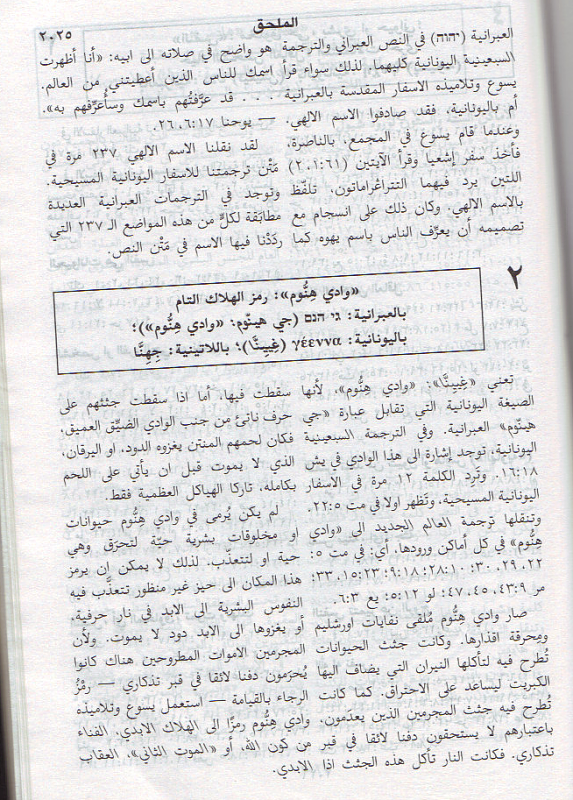 الملحق
٢٠٢٥
العبرانية (יהוה) في النص العبراني والترجمة
السبعينية اليونانية كليهما. لذلك سواء قرأ
يسوع وتلاميذه الاسفار المقدسة بالعبرانية
أم باليونانية، فقد صادفوا الاسم الالهي.
وعندما قام يسوع في المجمع، بالناصرة،
فأخذ سفر إشعيا وقرأ الآيتين (٦١:١، ٢)
اللتين يرد فيهما التتراغراماتون، تلفّظ
بالاسم الالهي. وكان ذلك على انسجام مع
تصميمه أن يعرِّف الناس باسم يهوه كما
هو واضح في صلاته الى ابيه: «أنا أظهرت
اسمك للناس الذين أعطيتني من العالم.
. . . قد عرَّفتُهم باسمك وسأُعرِّفهم به».
— يوحنا ١٧:٦، ٢٦.
لقد نقلنا الاسم الالهي ٢٣٧ مرة في
مَتْن ترجمتنا للاسفار اليونانية المسيحية.
وتوجد في الترجمات العبرانية العديدة
مطابَقة لكلٍّ من هذه المواضع الـ ٢٣٧ التي
ردَدْنا فيها الاسم في مَتْن النص.
٢
«وادي هِنُّوم»: رمز الهلاك التام
بالعبرانية: גי הנם (جي هينّوم: «وادي هِنُّوم»)؛
باليونانية: γέεννα (غِيِينَّا)؛ باللاتينية: جِهِنَّا
تعني «غِيِينَّا»: «وادي هِنُّوم»، لأنها
الصيغة اليونانية التي تقابل عبارة «جي
هينّوم» العبرانية. وفي الترجمة السبعينية
اليونانية، توجد إشارة الى هذا الوادي في يش
١٨:١٦. وتَرِد الكلمة ١٢ مرة في الاسفار
اليونانية المسيحية، وتَظهر اولا في مت ٥:٢٢.
وتنقلها ترجمة العالم الجديد الى «وادي
هِنُّوم» في كل أماكن ورودها، أي: في مت ٥:
٢٢، ٢٩، ٣٠؛ ١٠:٢٨؛ ١٨:٩؛ ٢٣:١٥، ٣٣؛
مر ٩:٤٣، ٤٥، ٤٧؛ لو ١٢:٥؛ يع ٣:٦.
صار وادي هِنُّوم مُلقى نفايات اورشليم
ومِحرقة اقذارها. وكانت جثث الحيوانات
تُطرح فيه لتأكلها النيران التي يضاف اليها
الكبريت ليساعد على الاحتراق. كما كانت
تُطرح فيه جثث المجرمين الذين يعدمون،
باعتبارهم لا يستحقون دفنا لائقا في قبر
تذكاري. فكانت النار تأكل هذه الجثث اذا
سقطت فيها، أما اذا سقطت جثثهم على
حرف ناتئ من جنب الوادي الضيِّق العميق،
فكان لحمهم المنتن يغزوه الدود، او اليرقان،
الذي لا يموت قبل ان يأتي على اللحم
بكامله، تاركا الهياكل العظمية فقط.
لم يكن يُرمى في وادي هِنُّوم حيوانات
او مخلوقات بشرية حيّة لتحرَق وهي
حية او لتتعذّب. لذلك لا يمكن ان يرمز
هذا المكان الى حيز غير منظور تتعذَّب فيه
النفوس البشرية الى الابد في نار حرفية،
أو يغزوها الى الابد دود لا يموت. ولأن
المجرمين الاموات المطروحين هناك كانوا
يُحرَمون دفنا لائقا في قبر تذكاري — رمْزُ
الرجاء بالقيامة — استعمل يسوع وتلاميذه
وادي هِنُّوم رمزًا الى الهلاك الابدي. الفناء
من كون الله، أو «الموت الثاني»، العقاب
الابدي.